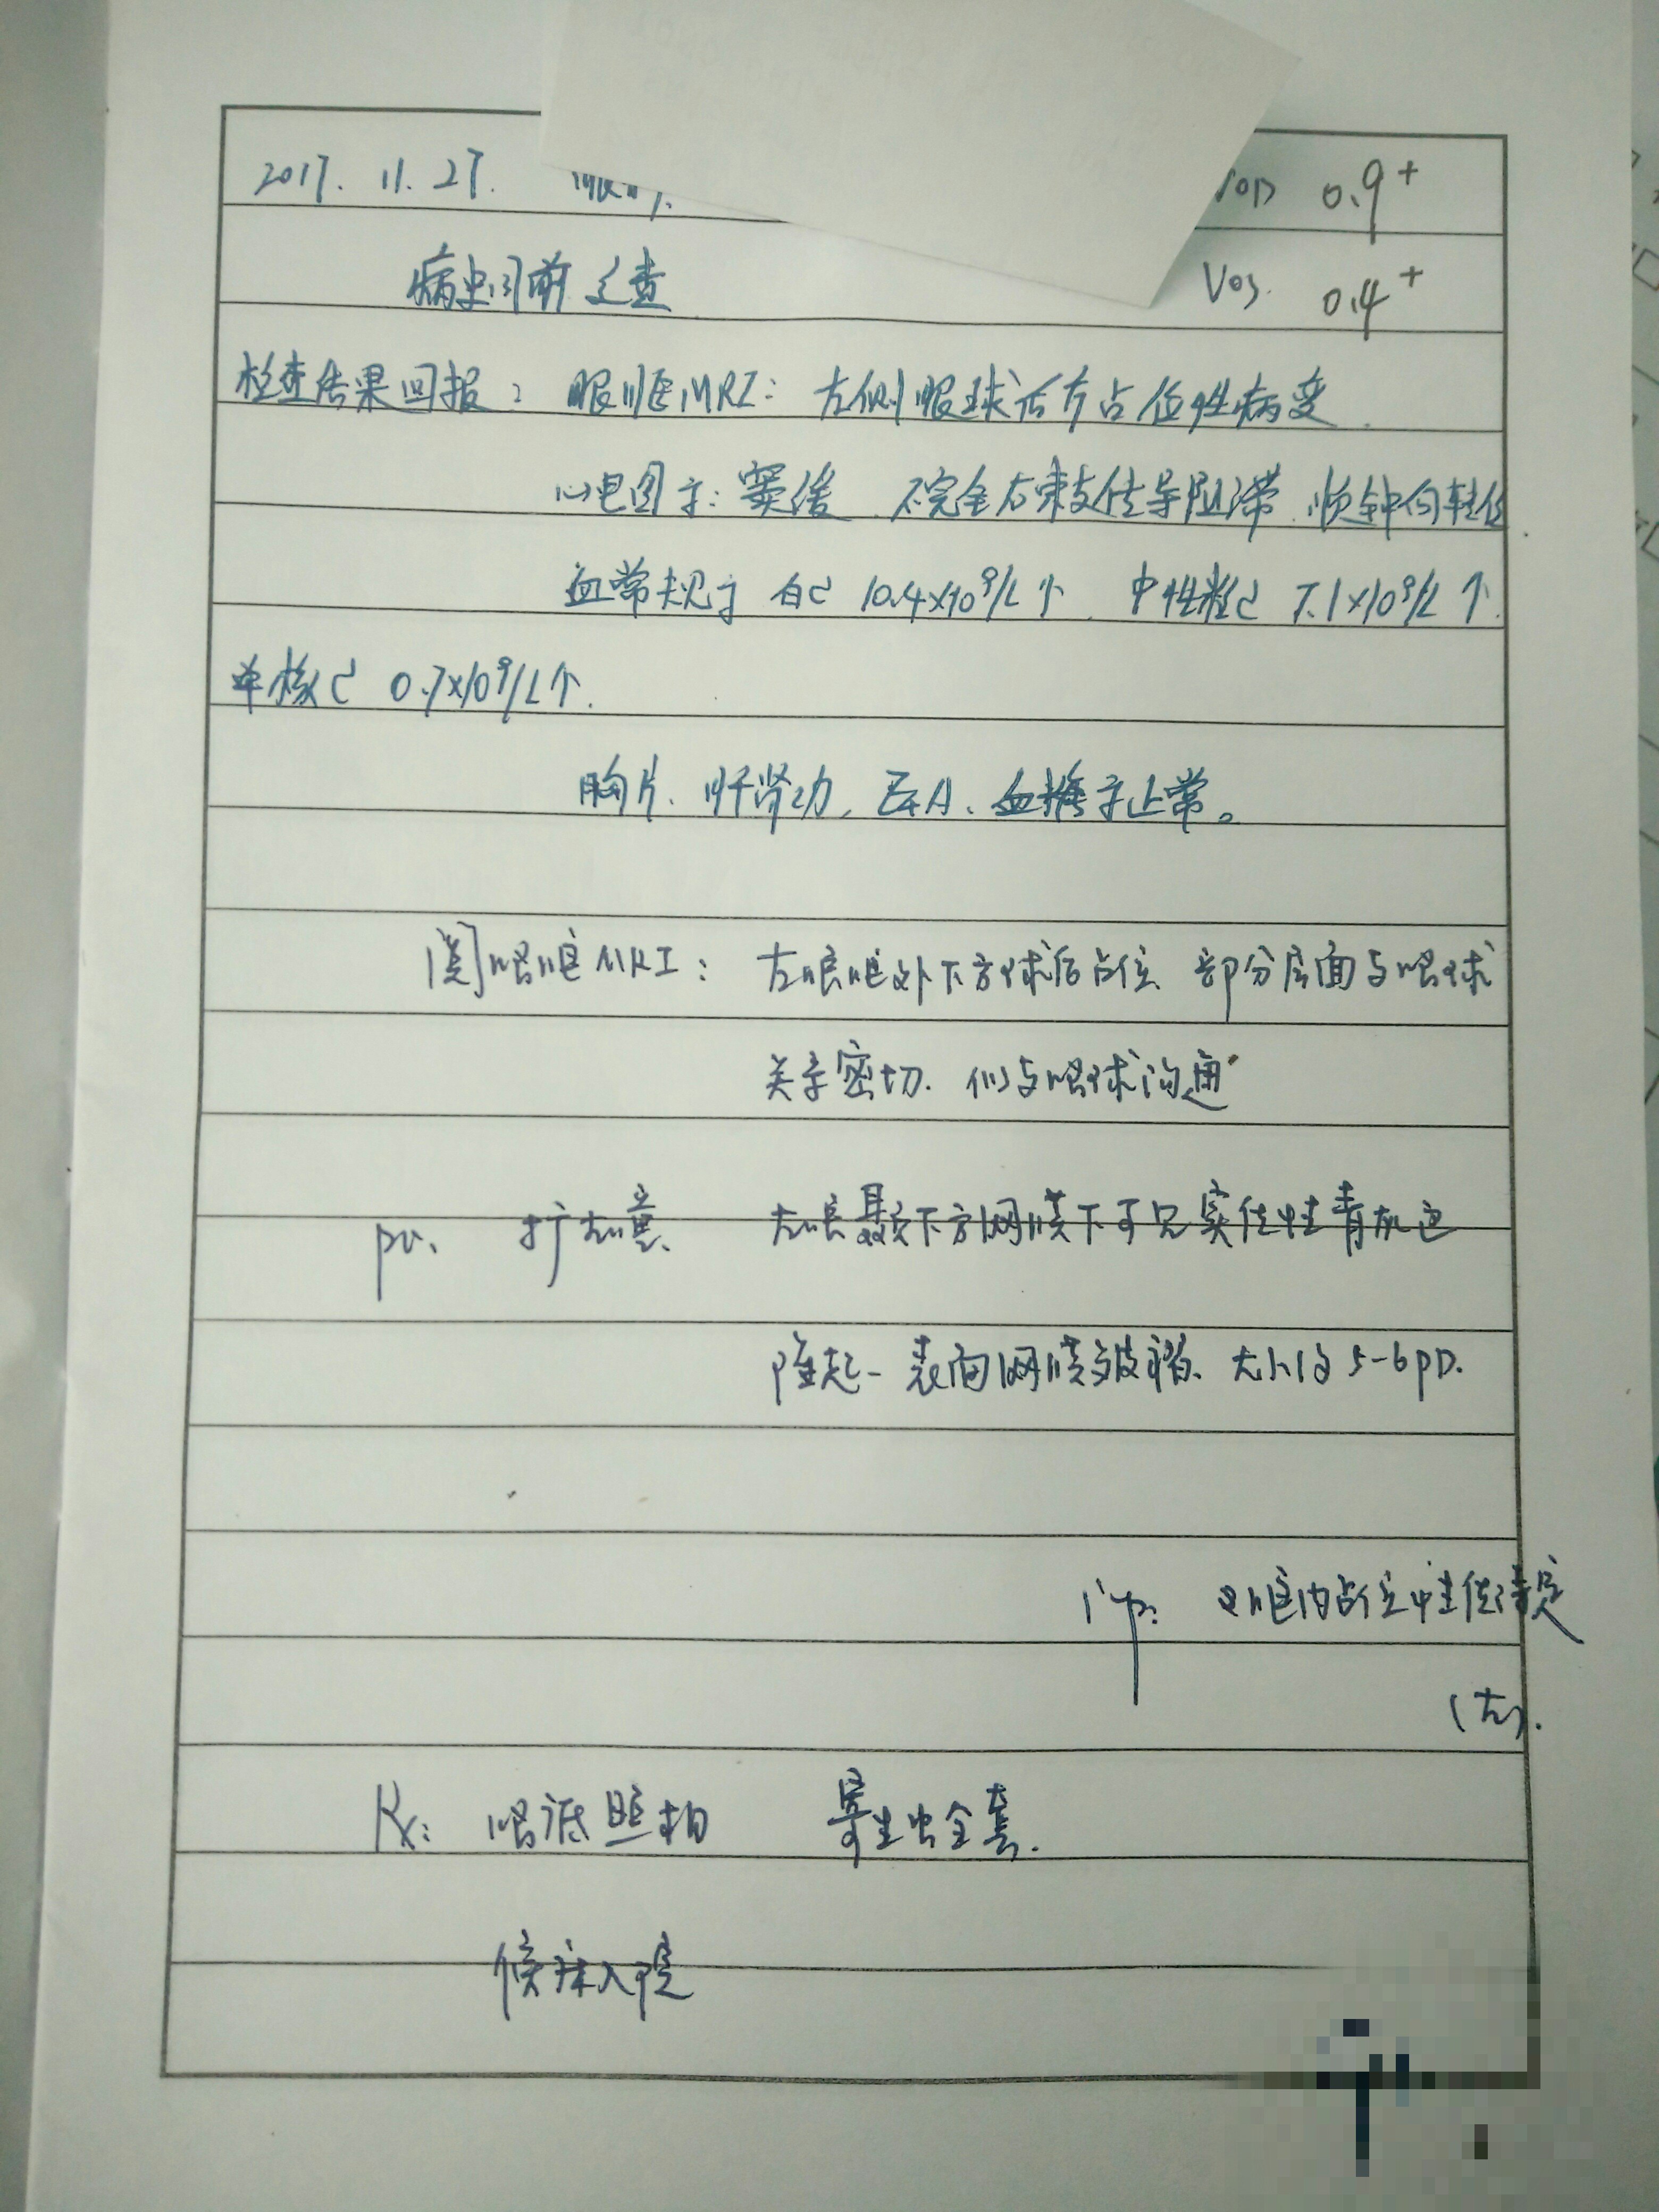 2017. 11. 27. VOD 0.9+
病史同前 复查 Vos. 0.4+
检查结果回报: 眼眶MRI: 左侧眼球后方占位性病变.
心电图示: 窦缓 不完全右束支传导阻滞 顺钟向转位.
血常规示 白C 10.4×10⁹/L↑ 中性粒C 7.1×10⁹/L↑.
单核C 0.7×10⁹/L↑.
胸片、肝肾功、血糖示正常。
眼眶MRI: 左眼眶外下方球后占位、部分层面与眼球
关系密切. 似与眼球沟通
pv. 扩左瞳. 左眼颞下方网膜下可见实体性青灰色
隆起- 表面网膜皱褶. 大小约5-6PD.
Imp: 眶内占位性质待定
(左).
Rx: 眼底照相 寄生虫全套.
候床入院